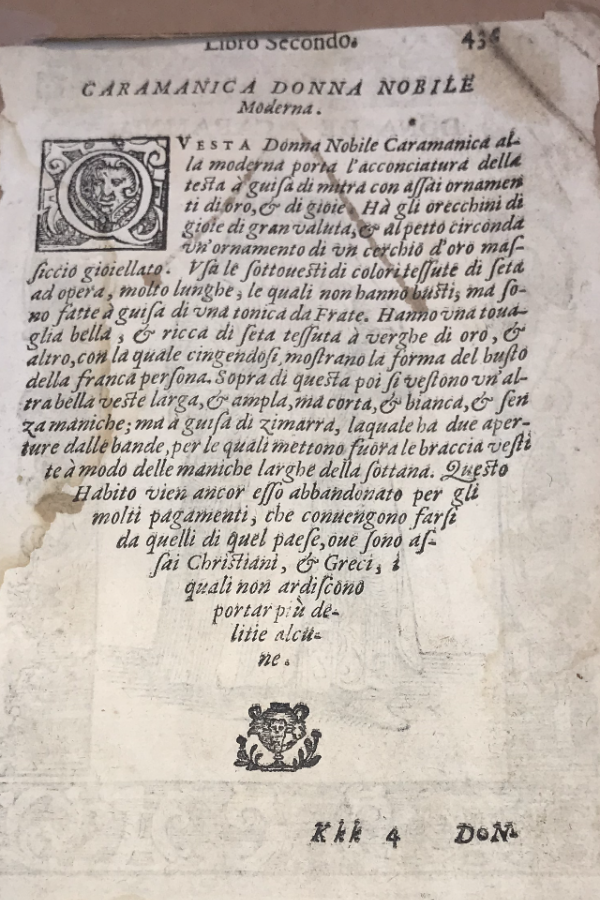 Libro Secondo. 436
CARAMANICA DONNA NOBILE
Moderna.
QVESTA Donna Nobile Caramanica al-
la moderna porta l'acconciatura della
testa à guiſa di mitra con aſſai ornamen
ti di oro, & di gioie. Hà gli orecchini di
gioie di gran valuta, & al petto circonda
vn'ornamento di vn cerchio d'oro maſ-
ſiccio gioiellato. Vſa le ſottoueſti di colori teſſute di ſeta
ad opera, molto lunghe; le quali non hanno buſti; ma ſo-
no fatte à guiſa di vna tonica da Frate. Hanno vna toua-
glia bella, & ricca di ſeta teſſuta à verghe di oro, &
altro, con la quale cingendoſi, moſtrano la forma del buſto
della franca perſona. Sopra di queſta poi ſi veſtono vn'al-
tra bella veſte larga, & ampla, ma corta, & bianca, & ſen
za maniche; ma à guiſa di zimarra, laquale ha due aper-
ture dalle bande, per le quali mettono fuora le braccia veſti
te à modo delle maniche larghe della ſottana. Queſto
Habito vien ancor eſſo abbandonato per gli
molti pagamenti, che conuengono farſi
da quelli di quel paeſe, oue ſono aſ-
ſai Chriſtiani, & Greci, i
quali non ardiſcono
portar più de-
litie alcu-
ne.
Kkk 4 DON-